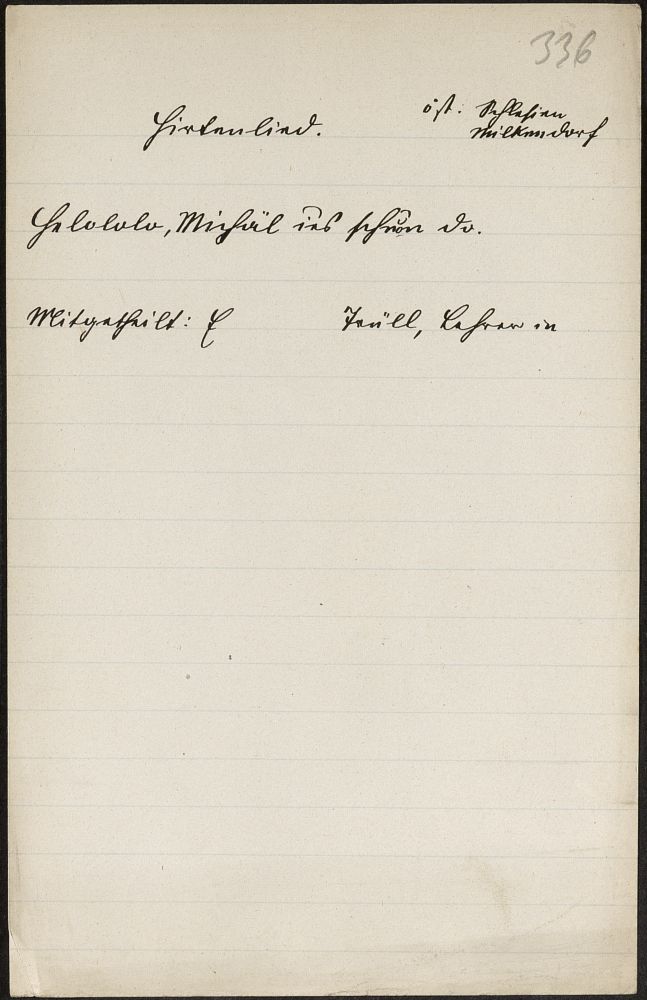 336
Hirtenlied.
öst. Schlesien
Milkendorf
Helololo, Michäl ies schun do.
Mitgetheilt: E
Trull, Lehrer in